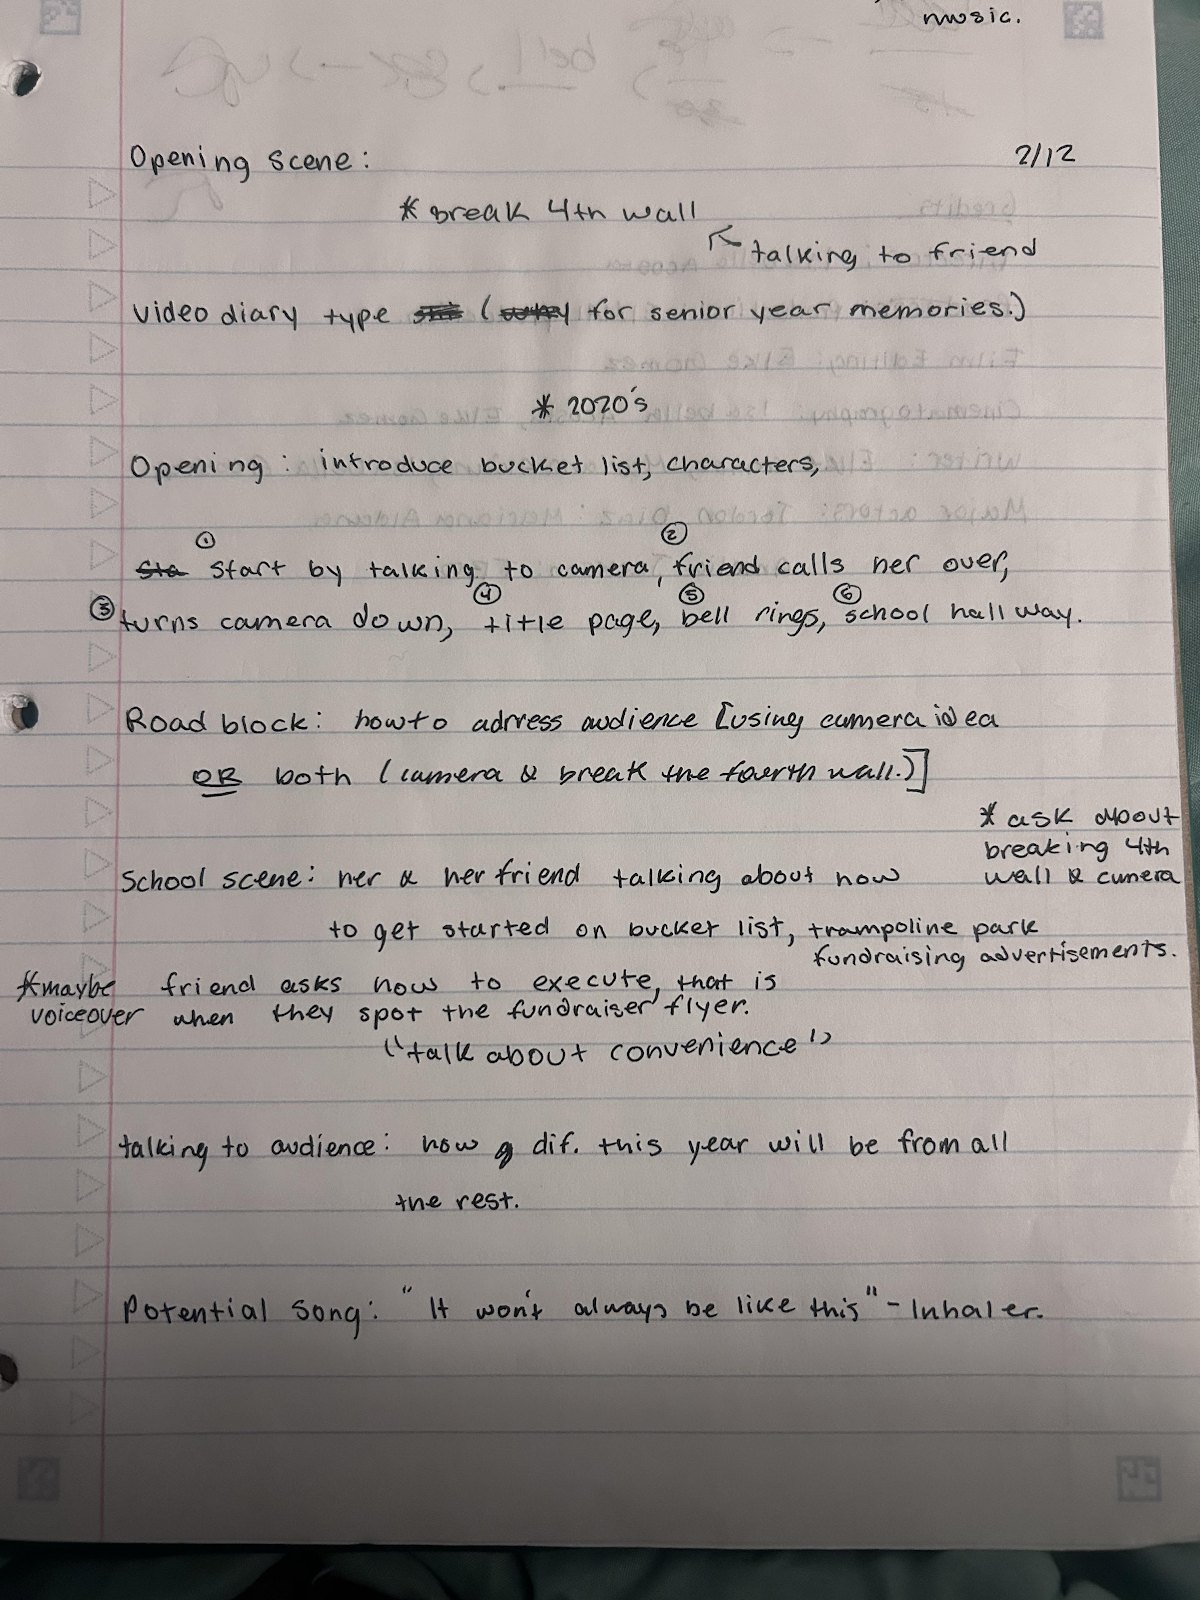 music.
Opening scene:
2/12
* Break 4th wall
talking to friend
video diary type ( for senior year memories.)
* 2020's
Opening: introduce bucket list, characters,
① ②
Sta start by talking to camera, friend calls her over,
③ ④ ⑤ ⑥
turns camera down, title page, bell rings, school hallway.
Road block: how to adrress audience [using camera idea
OR both (camera & break the fourth wall.)]
* ask about
breaking 4th
wall & camera
School scene: her & her friend talking about how
to get started on bucket list, trampoline park
fundraising advertisements.
*maybe friend asks how to execute, that is
voiceover when they spot the fundraiser flyer.
("talk about convenience")
talking to audience: how dif. this year will be from all
the rest.
Potential song: "It won't always be like this" - Inhaler.